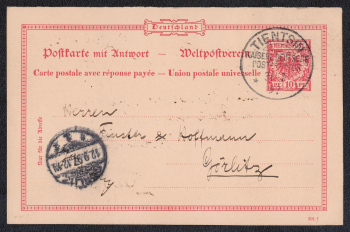 Deutschland
Postkarte mit Antwort — Weltpostverein
Carte postale avec réponse payée — Union postale universelle
TIENTSIN
10
Herren
& Hoffmann
Görlitz
Nur für die Adresse
12.9.97